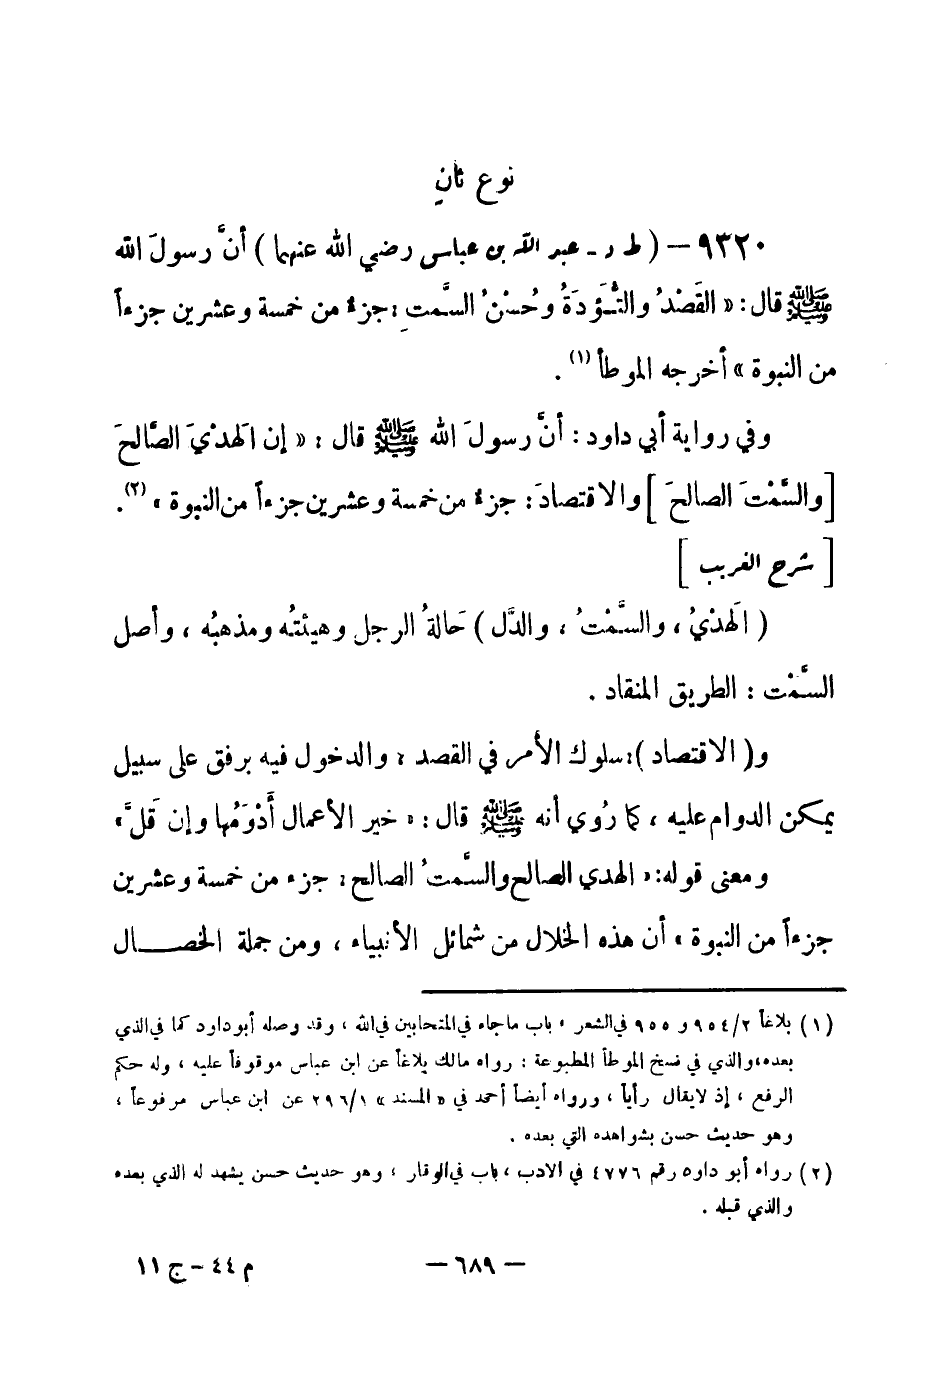 نوع ثانٍ
٩٣٢٠ – ( ط ر ـ عبد الله بن عباس رضي الله عنهما ) أنَّ رسولَ الله
ﷺ قال : « القَصْدُ والتُّؤَدَةُ وحُسْنُ السَّمتِ : جزءٌ من خمسة وعشرين جزءاً
من النبوة » أخرجه الموطأ (١) .
وفي رواية أبي داود : أنَّ رسولَ الله ﷺ قال : « إن الهَدْيَ الصَّالحَ
[ والسَّمْتَ الصالحَ ] والاقتصادَ : جزء من خمسة وعشرين جزءاً من النبوة » (٢) .
[ شرح الغريب ]
( الهَدْيُ ، والسَّمْتُ ، والدَّل ) حَالةُ الرجل وهيئتُه ومذهبُه ، وأصل
السَّمْت : الطريق المنقاد .
و( الاقتصاد ) : سلوك الأمر في القصد ، والدخول فيه برفق على سبيل
يمكن الدوام عليه ، كما رُوي أنه ﷺ قال : « خير الأعمال أَدْوَمُها وإن قَلَّ »
ومعنى قوله : « الهدي الصالح والسَّمتُ الصالح : جزء من خمسة وعشرين
جزءاً من النبوة » أن هذه الخلال من شمائل الأنبياء ، ومن جملة الخصـــال
(١) بلاغاً ٩٥٤/٢ و ٩٥٥ في الشعر ، باب ماجاء في المتحابين في الله ، وقد وصله أبو داود كما في الذي
بعده، والذي في نسخ الموطأ المطبوعة : رواه مالك بلاغاً عن ابن عباس موقوفاً عليه ، وله حكم
الرفع ، إذ لا يقال رأياً ، ورواه أيضاً أحمد في « المسند » ٢٩٦/١ عن ابن عباس مرفوعاً ،
وهو حديث حسن بشواهده التي بعده .
(٢) رواه أبو داود رقم ٤٧٧٦ في الادب ، باب في الوقار ، وهو حديث حسن يشهد له الذي بعده
والذي قبله .
– ٦٨٩ –
م ٤٤ – ج ١١